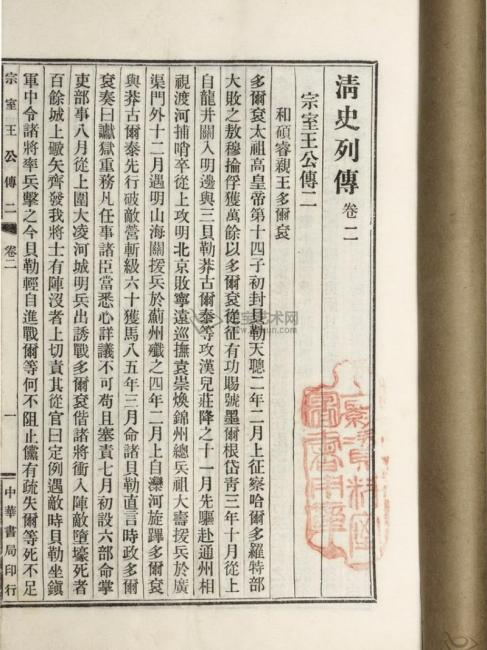 清史列傳 卷二
宗室王公傳二
和碩睿親王多爾袞
多爾袞太祖高皇帝第十四子初封貝勒天聰二年二月上征察哈爾多羅特部
大敗之敖穆掄俘獲萬餘以多爾袞從征有功賜號墨爾根岱青三年十月從上
自龍井關入明邊與三貝勒莽古爾泰等攻漢兒莊降之十一月先驅赴通州相
視渡河捕哨卒從上攻明北京敗寧遠巡撫袁崇煥錦州總兵祖大壽援兵於廣
渠門外十二月遇明山海關援兵於薊州殲之四年二月上自灤河旋蹕多爾袞
與莽古爾泰先行破敵營斬級六十獲馬八五年三月命諸貝勒直言時政多爾
袞奏曰讞獄重務凡任事諸臣當悉心詳議不可苟且塞責七月初設六部命掌
吏部事八月從上圍大凌河城明兵出誘戰多爾袞偕諸將衝入陣敵墮壕死者
百餘城上礮矢齊發我將士有陣沒者上切責其從官曰定例遇敵時貝勒坐鎮
軍中令諸將率兵擊之今貝勒輕自進戰爾等何不阻止儻有疏失爾等死不足
宗室王公傳二
卷二
一
中華書局印行